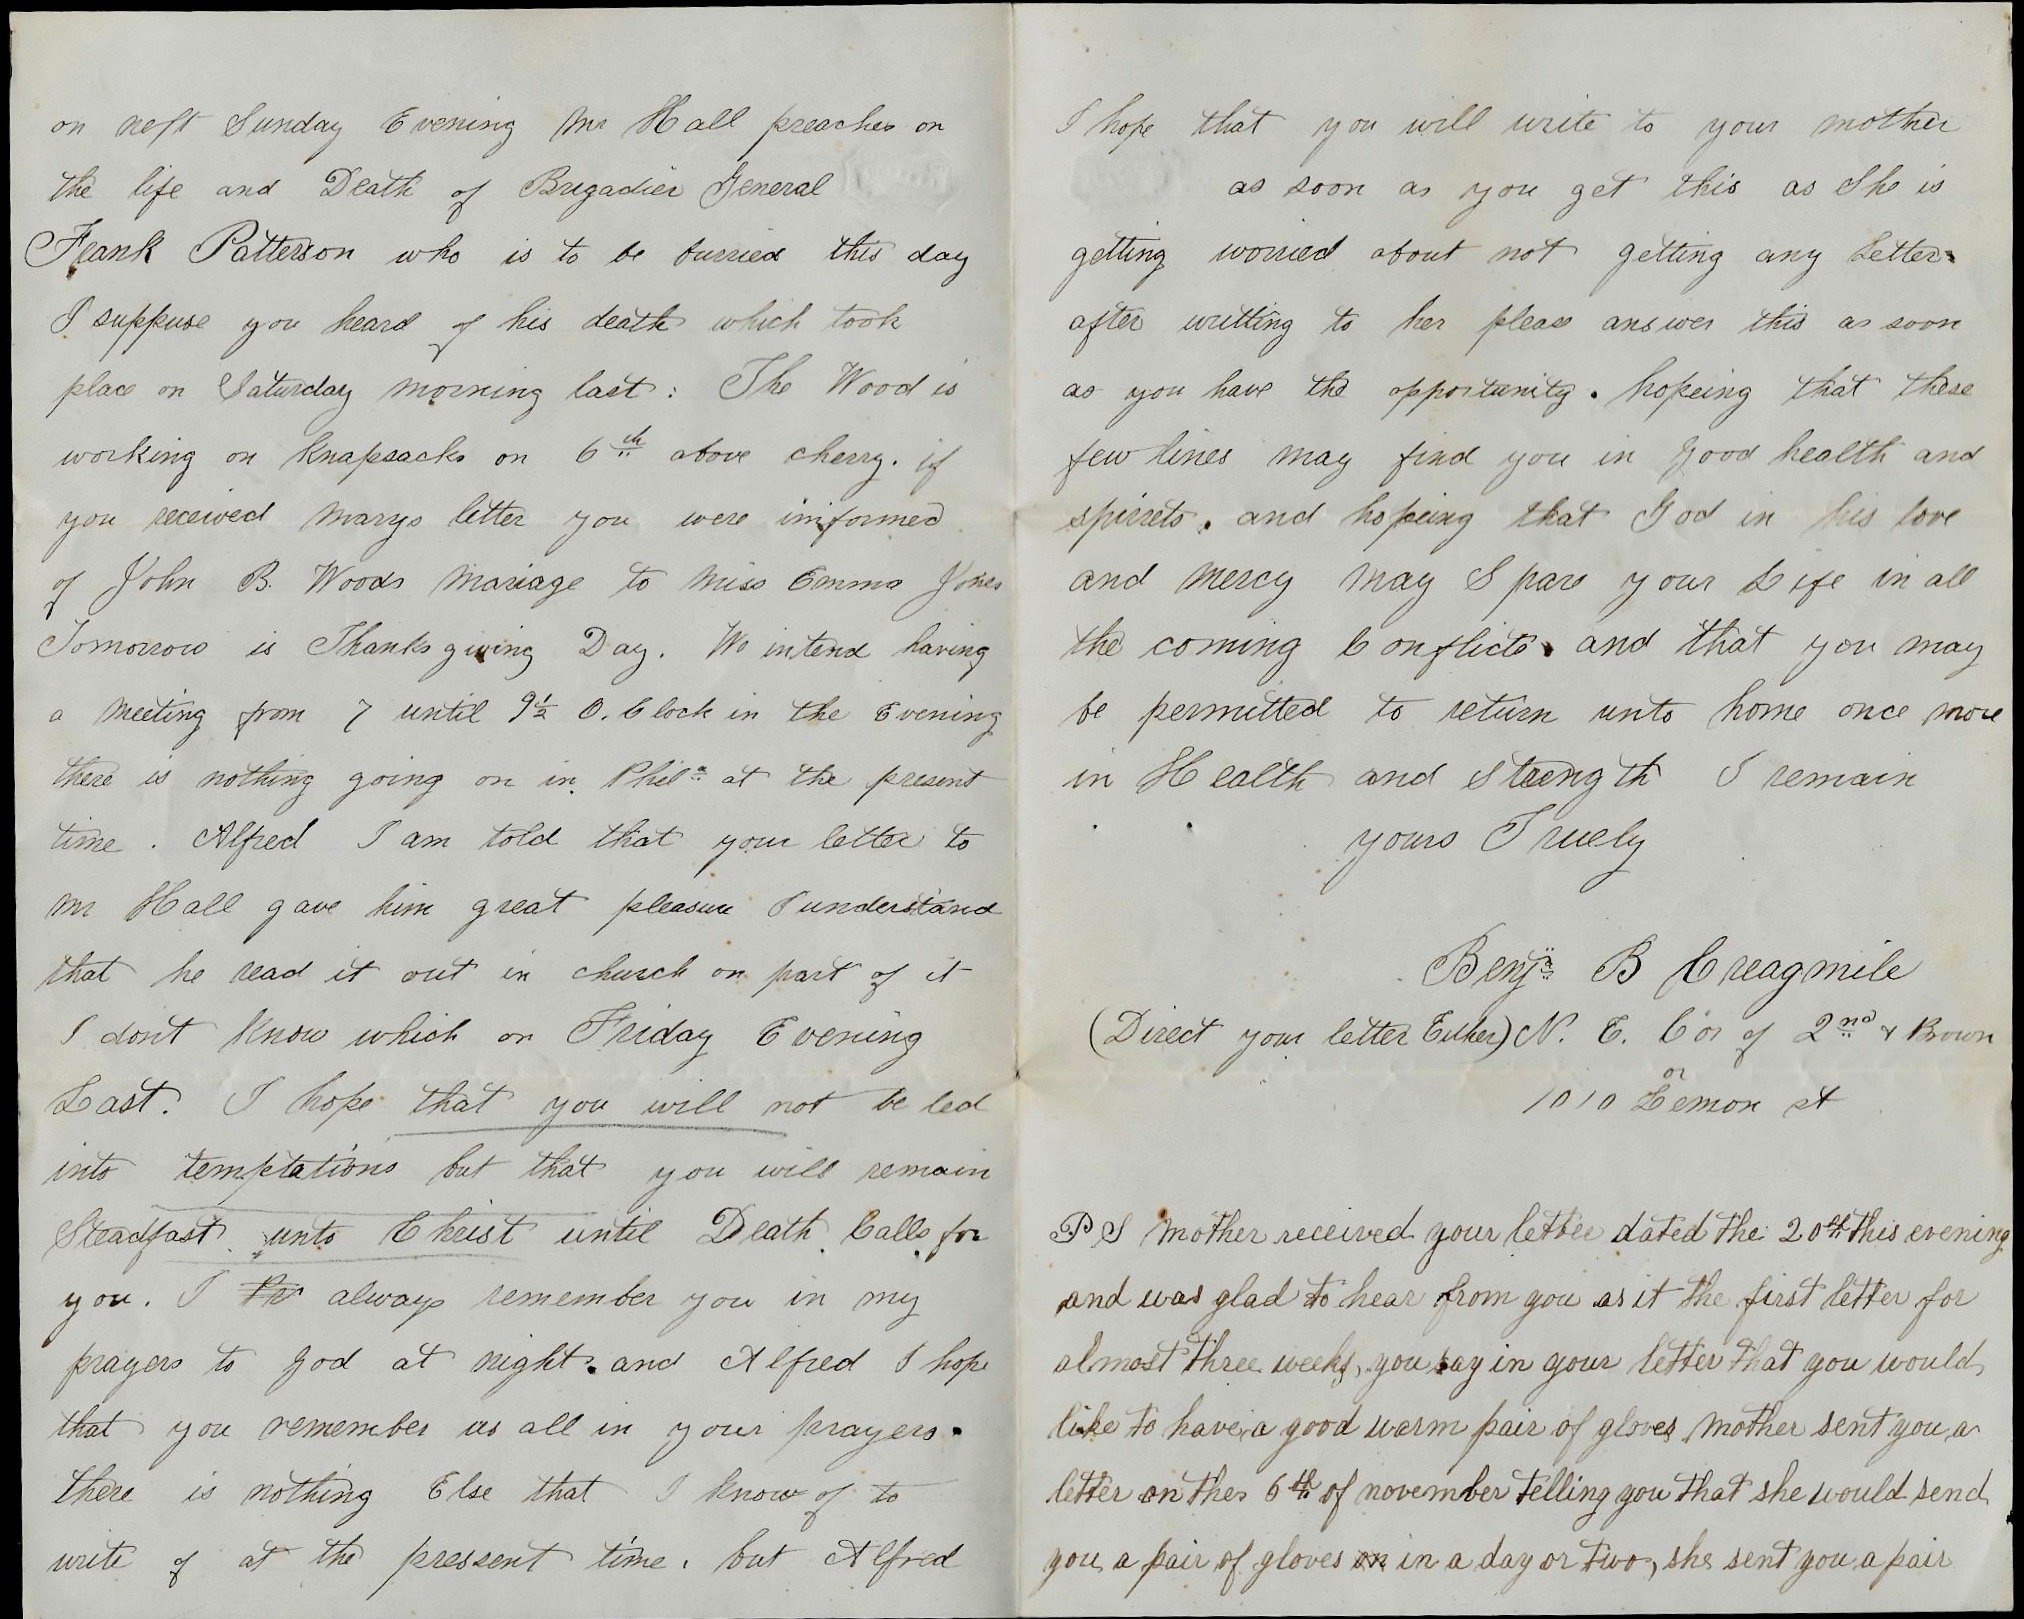 on neft Sunday Evening Mr Hall preaches on
the life and Death of Brigadier General
Frank Patterson who is to be burried this day
I suppuse you heard of his death which took
place on Saturday morning last: The Wood is
working on Knapsacks on 6th above cherry. if
you received Marys letter you were imformed
of John B. Woods Mariage to Miss Emma Jones
Tomorrow is Thanksgiving Day. We intend having
a Meeting from 7 until 9½ O. Clock in the Evening
there is nothing going on in Phila at the present
time. Alfred I am told that your letter to
Mr Hall gave him great pleasure I understand
that he read it out in church or part of it
I dont Know which on Friday Evening
Last. I hope that you will not be led
into temptations but that you will remain
Steadfast unto Christ until Death Calls for
you. I Pr always remember you in my
prayers to God at night. and Alfred I hope
that you remember us all in your prayers.
there is nothing Else that I know of to
write of at the pressent time. but Alfred
I hope that you will write to your mother
as soon as you get this as She is
getting worried about not getting any Letters
after writting to her please answer this as soon
as you have the opportunity. hopeing that these
few lines may find you in good health and
spirrets. and hopeing that God in his love
and mercy may Spare your Life in all
the coming Conflicts. and that you may
be permitted to return unto home once more
in Health and Streength I remain
yours Truely
Benja B Creagmile
(Direct your letter Either) N. E. Cor of 2nd & Brown
or
1010 Lemon st
P S Mother received your letter dated the 20th this evening
and was glad to hear from you as it the first letter for
almost three weeks, you say in your letter that you would
like to have a good warm pair of gloves Mother sent you a
letter on the 6th of november telling you that she would send
you a pair of gloves on in a day or two, she sent you a pair